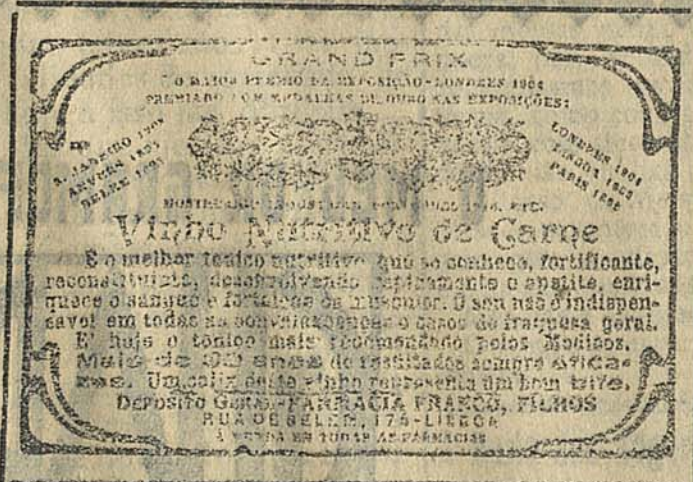 GRAND PRIX
O MAIOR PREMIO DA EXPOSIÇÃO-LONDRES 1904
PREMIADO COM MEDALHAS DE OURO NAS EXPOSIÇÕES:
JANEIRO 1908
ANVERS
BELEM
LONDRES 1904
LISBOA
PARIS
ETC.
Vinho Nutritivo de Carne
E o melhor tonico nutritivo que se conhece, fortificante,
reconstituinte, desenvolvendo rapidamente o apetite, enri-
quece o sangue e fortalece os musculos. O seu uso é indispen-
savel em todas as convalescenças e casos de fraquesa geral.
E' hoje o tonico mais recomendado pelos Medicos.
Mais de anos de resultados sempre efica-
zes. Um calix deste vinho representa um bom bife.
DEPOSITO GERAL-FARMACIA FRANCO, FILHOS
RUA DE BELEM, -LISBOA
Á VENDA EM TODAS AS FARMACIAS